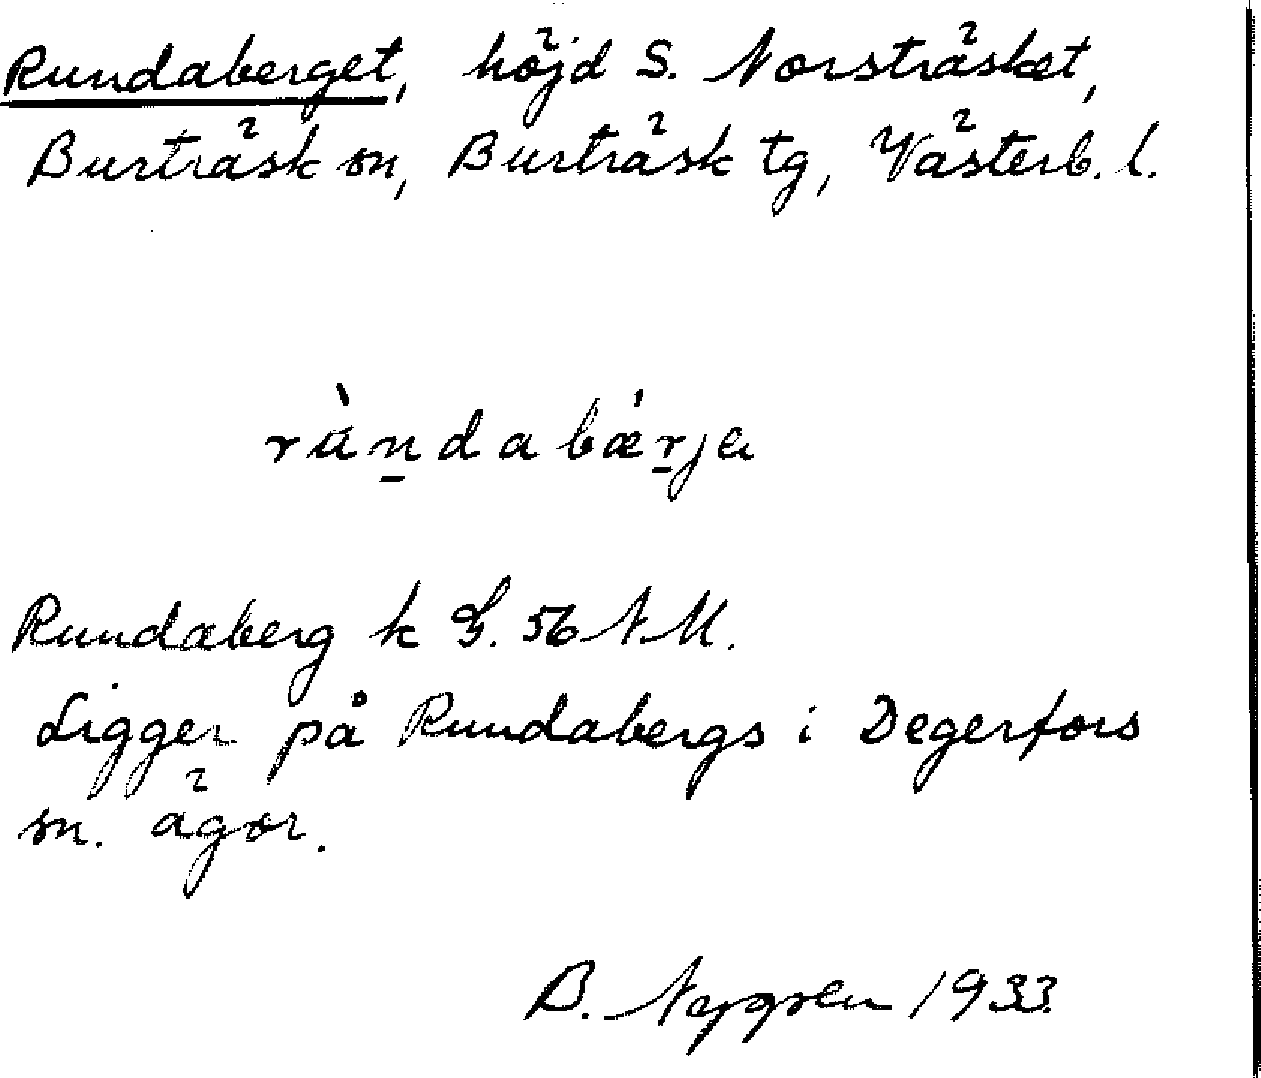 Rundaberget, höjd S. Norsträsket,
Burträsk sn, Burträsk tg, Västerb. l.
ràndabǽrja
Rundaberg k G. 56 NM.
Ligger på Rundabergs i Degerfors
sn. ägor.
B. Nygren 1933